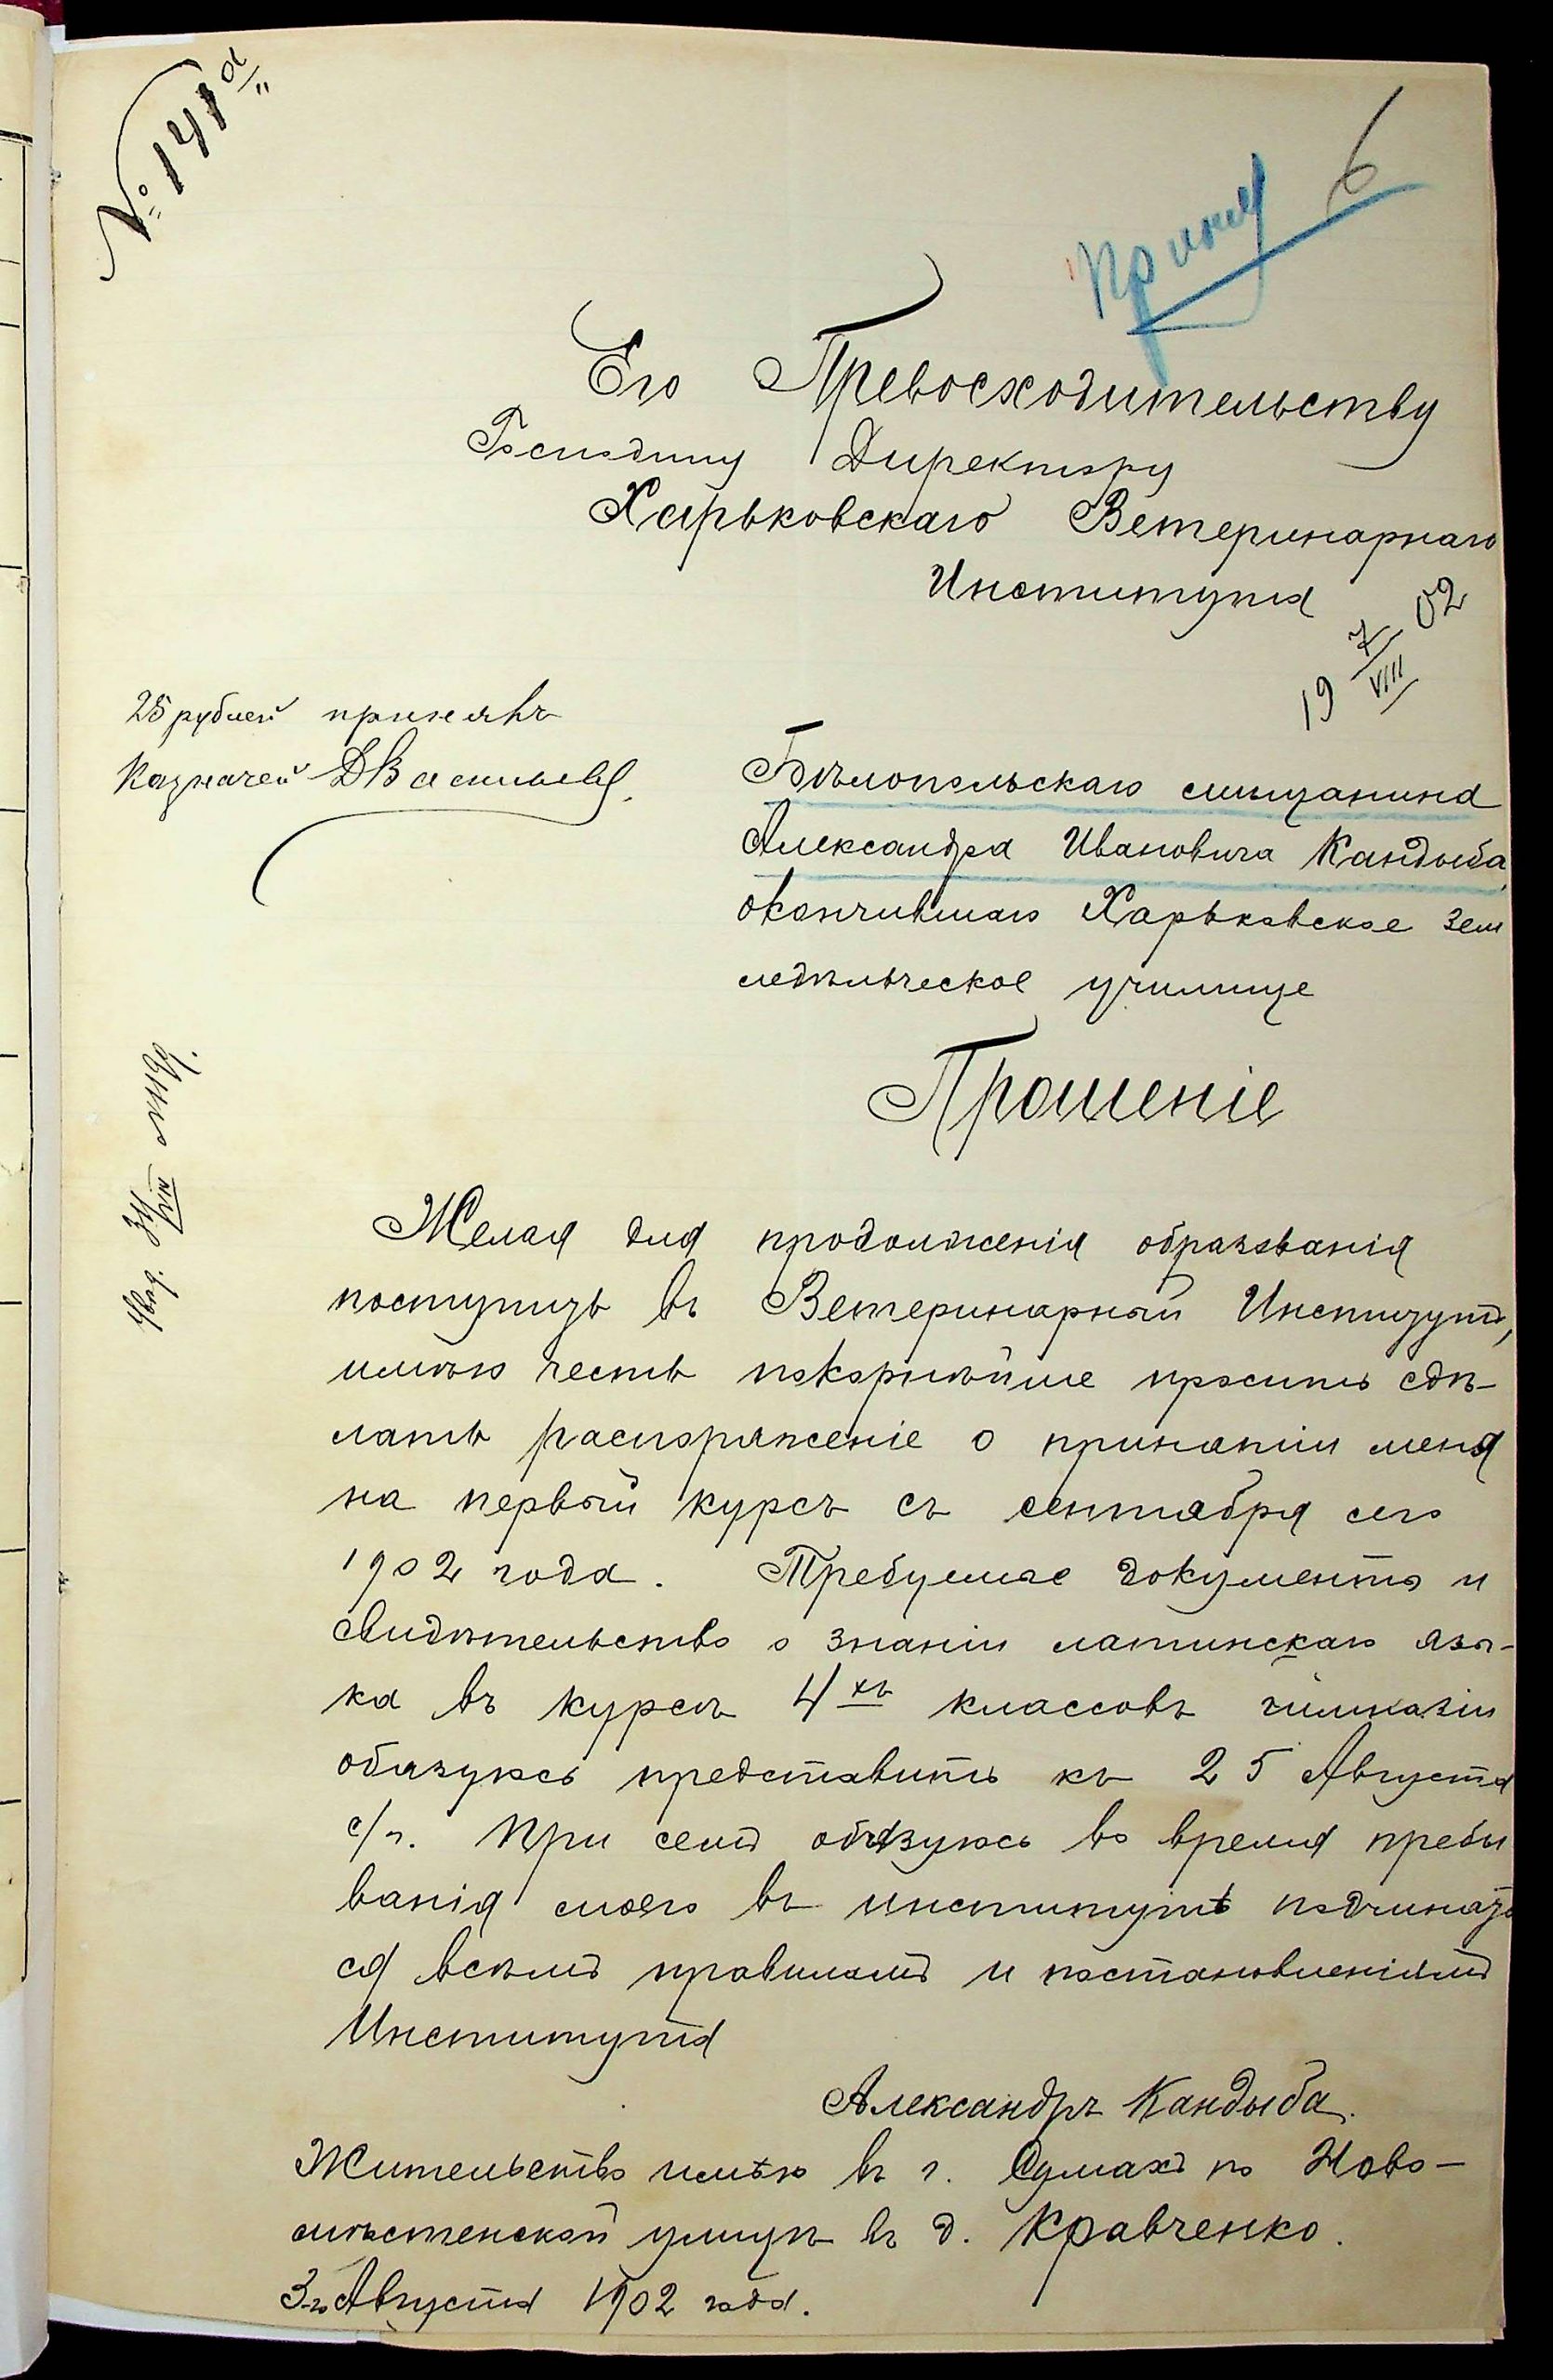 № 141а
6
Приня
Его Превосходительству
Господину Директору
Харьковскаго Ветеринарнаго
Института
19 7/VIII 02
25 рублей принялъ
Казначей ДВасильевъ.
Бѣлопольскаго мѣщанина
Александра Ивановича Кандыба,
окончившаго Харьковское зем
ледѣльческое училище
Прошеніе
Увѣд. VIII
Желая для продолженія образованія
поступить въ Ветеринарный Институтъ,
имѣю честь покорнѣйше просить сдѣ-
лать распоряженіе о принятіи меня
на первый курсъ съ сентября сего
1902 года. Требуемые документы и
свидѣтельство о знаніи латинскаго язы-
ка въ курсѣ 4хъ классовъ гимназіи
обязуюсь представить къ 25 Августа
с/г. При семъ обязуюсь во время пребы
ванія моего въ институтѣ подчинять
ся всѣмъ правиламъ и постановленіямъ
Института
Александръ Кандыба.
Жительство имѣю въ г. Сумахъ по Ново-
мѣстенской улицѣ въ д. Кравченко.
3-го Августа 1902 года.